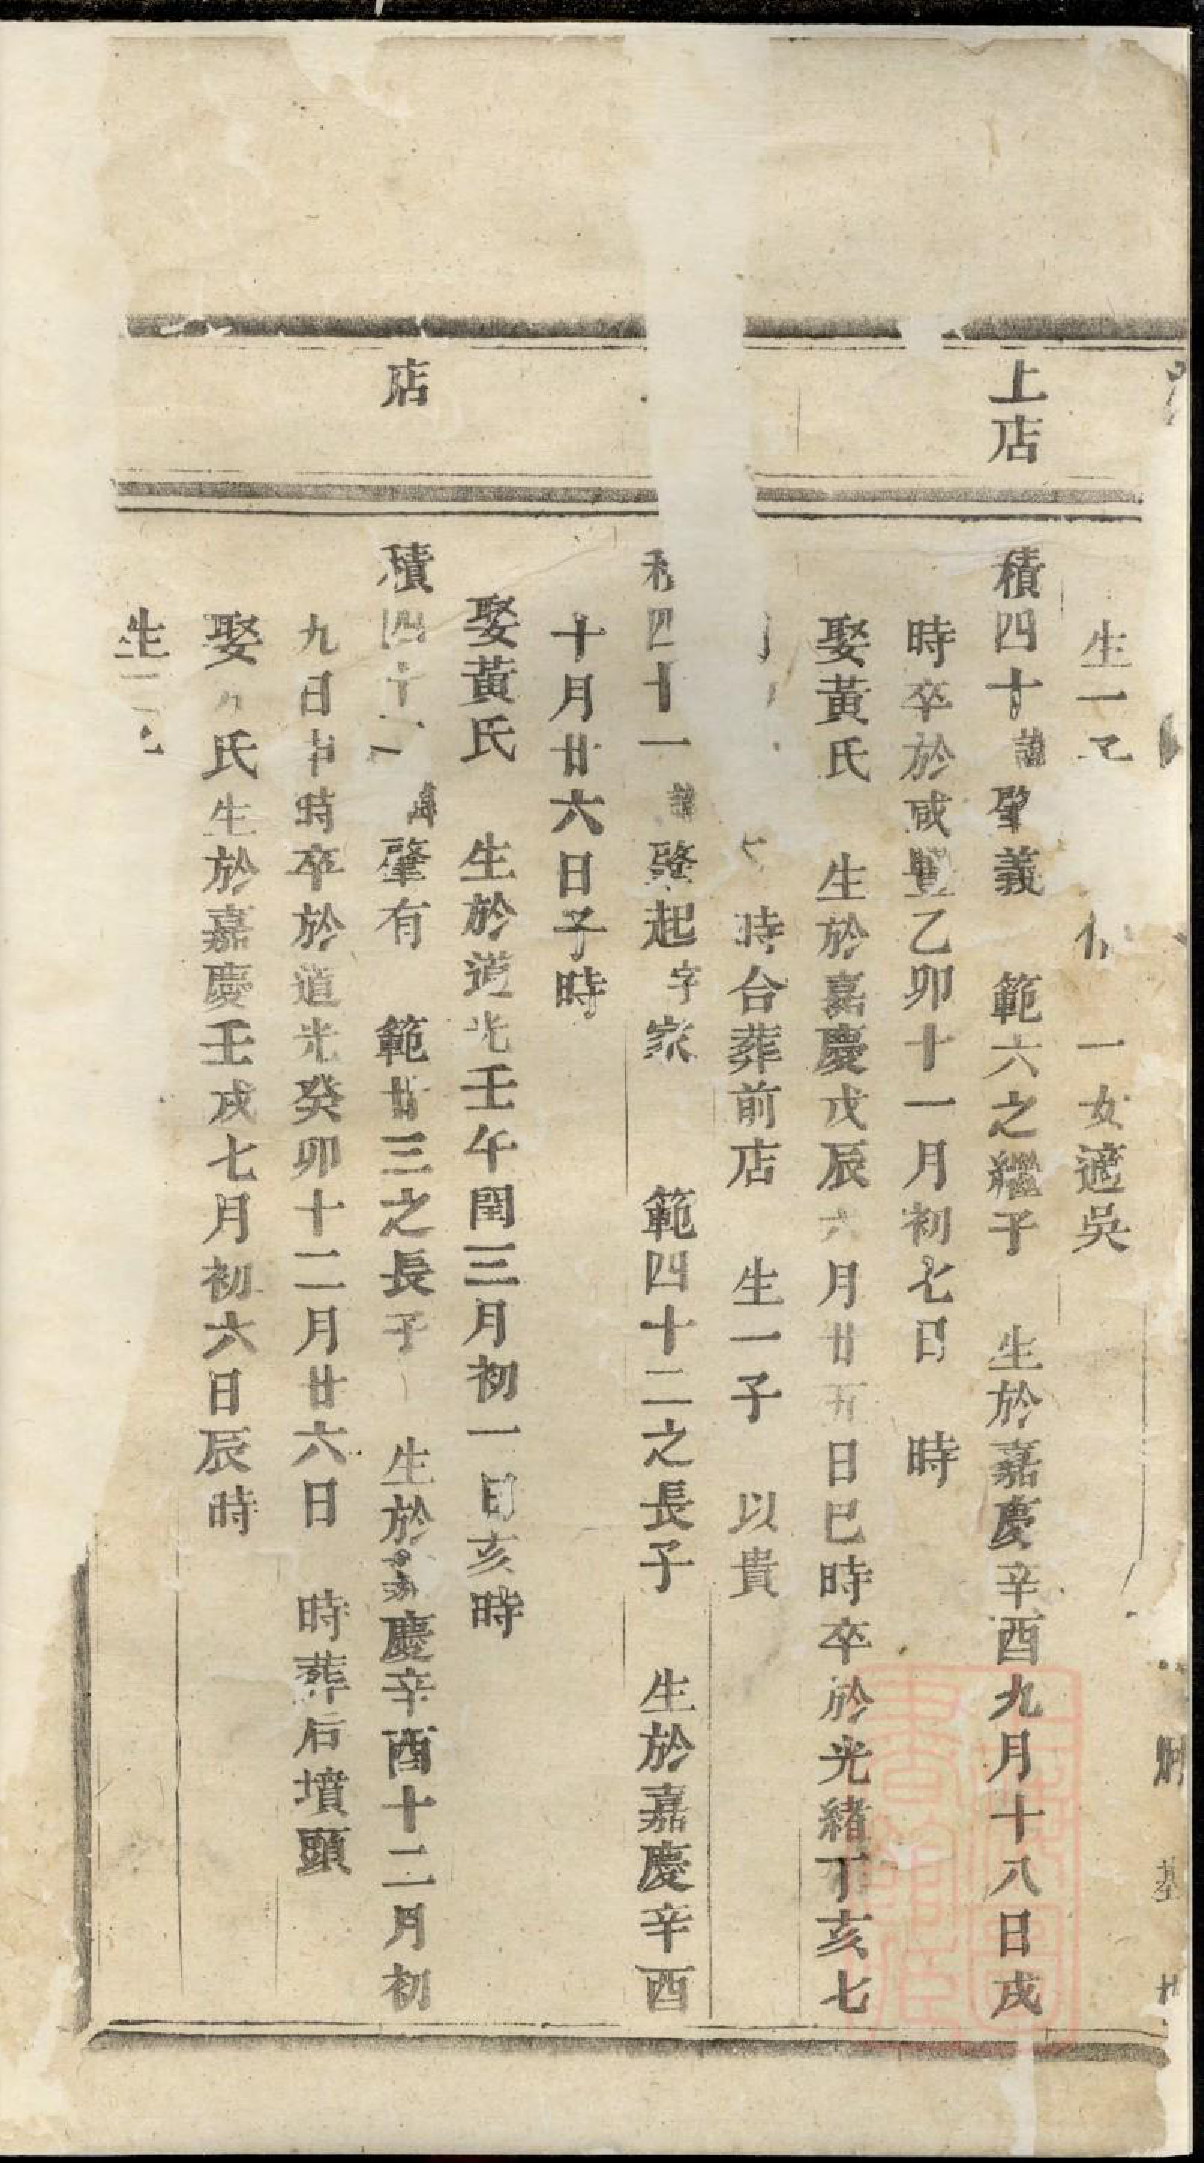 生一 一女適吳
上店
積四十諱肇義 範六之繼子 生於嘉慶辛酉九月十八日戌
時卒於咸豐乙卯十一月初七日 時
娶黃氏 生於嘉慶戊辰六月廿五日巳時卒於光緒丁亥七
時合葬前店 生一子 以貴
四十一諱肇起字家 範四十二之長子 生於嘉慶辛酉
十月廿六日子時
娶黃氏 生於道光壬午閏三月初一日亥時
店
積四十二諱肇有 範廿三之長子 生於嘉慶辛酉十二月初
九日申時卒於道光癸卯十二月廿六日 時葬后墳頭
娶 氏生於嘉慶壬戌七月初六日辰時
生